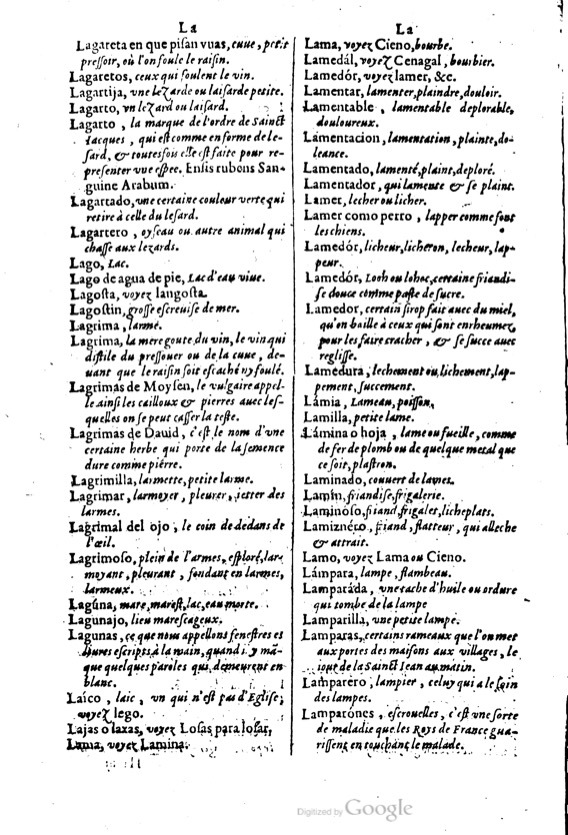 La
Lagareta en que pisan vuas, cuue, petit
pressoir, où l'on foule le raisin.
Lagaretos, ceux qui foulent le vin.
Lagartija, vne lezarde ou laisarde petite.
Lagarto, vn lezard ou laisard.
Lagarto, la marque de l'ordre de Sainct
Iacques, qui est comme en forme de le-
sard, & toutesfois elle est faite pour re-
presenter vne espee. Ensis rubens San-
guine Arabum.
Lagartado, vne certaine couleur verte qui
retire à celle du lesard.
Lagartero, oyseau ou autre animal qui
chasse aux lezards.
Lago, Lac.
Lago de agua de pie, Lac d'eau viue.
Lagosta, voyez langosta.
Lagostin, grosse escreuise de mer.
Lagrima, larme.
Lagrima, la mere goute du vin, le vin qui
distile du pressouer ou de la cuue, de-
uant que le raisin soit escaché ny foulé.
Lagrimas de Moysen, le vulgaire appel-
le ainsi les cailloux & pierres auec les-
quelles on se peut casser la teste.
Lagrimas de Dauid, c'est le nom d'vne
certaine herbe qui porte de la semence
dure comme pierre.
Lagrimilla, larmette, petite larme.
Lagrimar, larmoyer, pleurer, ietter des
larmes.
Lagrimal del ojo, le coin de dedans de
l'œil.
Lagrimoso, plein de l'armes, esploré, lar-
moyant, pleurant, fondant en larmes,
larmeux.
Lagúna, mare, marest, lac, eau morte.
Lagunajo, lieu marescageux.
Lagunas, ce que nous appellons fenestres es
liures escripts à la main, quand i y mā-
que quelques paroles qui demeurent en
blanc.
Laíco, laic, vn qui n'est pas d'Eglise,
voyez lego.
Lajas o laxas, voyez Losas para losar,
Lama, voyez Lamina.
La
Lama, voyez Cieno, bourbe.
Lamedál, voyez Cenagal, bourbier.
Lamedór, voyez lamer, &c.
Lamentar, lamenter, plaindre, douloir.
Lamentable, lamentable deplorable,
douloureux.
Lamentacion, lamentation, plainte, do-
leance.
Lamentado, lamenté, plaint, deploré.
Lamentador, qui lamente & se plaint.
Lamer, lecher ou licher.
Lamer como perro, lapper comme font
les chiens.
Lamedór, licheur, licheron, lecheur, lap-
peur.
Lamedór, Looh ou lohoc, certaine friandi-
se douce comme paste de sucre.
Lamedor, certain sirop fait auec du miel,
qu'on baille à ceux qui sont enrheumez
pour les faire cracher, & se succe auec
reglisse.
Lamedura, lechement ou lichement, lap-
pement, succement.
Lámia, Lameau, poisson,
Lamilla, petite lame.
Lámina o hoja, lame ou fueille, comme
de fer de plomb ou de quelque metal que
ce soit, plastron.
Laminado, couuert de lames.
Lamín, friandise, frigalerie.
Laminóso, friand, frigalet, licheplats.
Lamiznéro, friand, flatteur, qui alleche
& attrait.
Lamo, voyez Lama ou Cieno.
Lámpara, lampe, flambeau.
Lamparáda, vne tache d'huile ou ordure
qui tombe de la lampe
Lamparilla, vne petite lampe.
Lamparas, certains rameaux que l'on met
aux portes des maisons aux villages, le
iour de la Sainct Iean au matin.
Lamparéro, lampier, celuy qui a le soin
des lampes.
Lamparónes, escrouelles, c'est vne sorte
de maladie que les Roys de France gua-
rissent en touchant le malade.
Digitized by Google